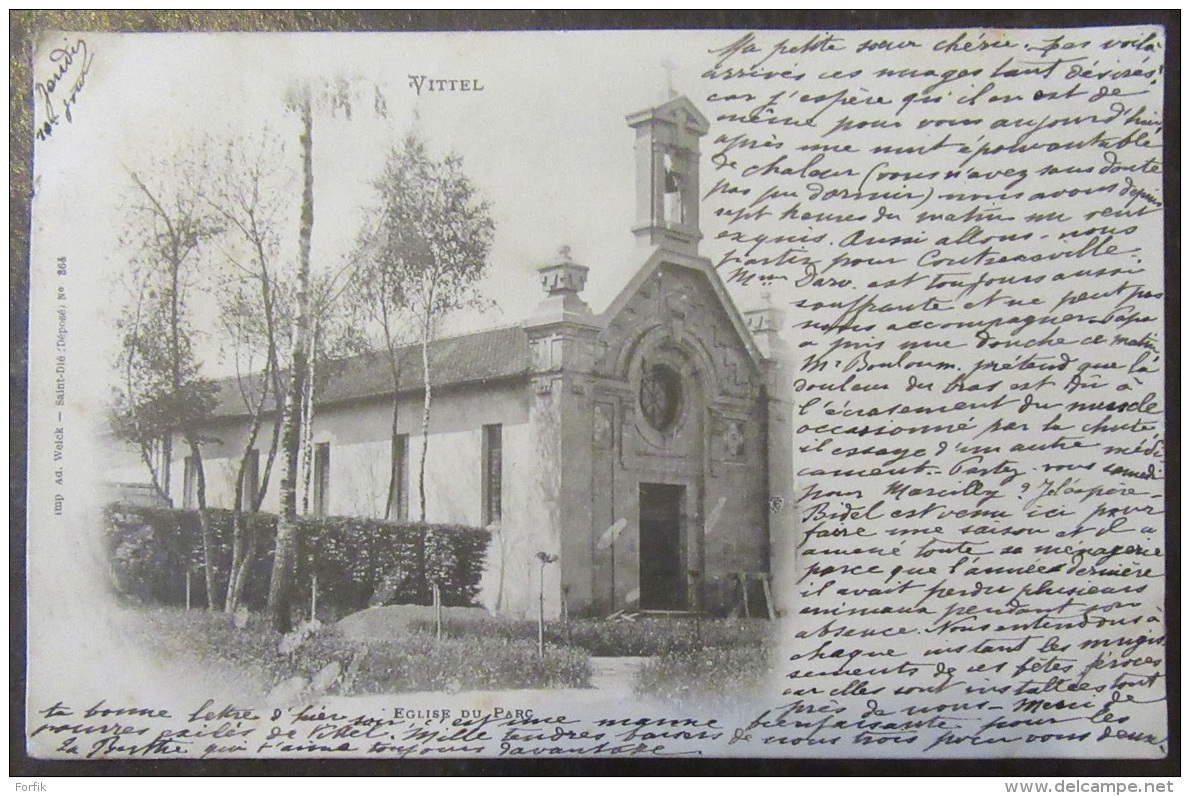 Jeudi
VITTEL
imp Ad. Weick — Saint-Dié (Déposé) No 364
Ma petite sœur chérie. Les voilà
arrivés ces nuages tant désirés!
car j'espère qu'il en est de
même pour vous aujourd'hui
après une nuit épouvantable
de chaleur (vous n'avez sans doute
pas pu dormir) nous avons depuis
sept heures du matin un vent
exquis. Aussi allons-nous
partir pour Contrexeville.
Mme est toujours aussi
souffrante et ne peut pas
nous accompagner. Papa
a pris une douche ce matin
Mr Bouloum. prétend que la
douleur du bras est dû à
l'écrasement du muscle
occasionné par la chute
il essaye d'un autre médi
cament. Partez-vous samedi
pour Marcilly? Je l'espère_
Bidel est venu ici pour
faire une saison et il a
amené toute sa ménagerie
parce que l'année dernière
il avait perdu plusieurs
animaux pendant son
absence. Nous entendons à
chaque instant les mugis
sements de ces bêtes féroces
car elles sont installées tout
près de nous. Merci de
EGLISE DU PARC
ta bonne lettre d'hier soir, c'est une manne bienfaisante pour les
pauvres exilés de Vittel. Mille tendres baisers de nous trois pour vous deux.
Ta Berthe qui t'aime toujours davantage
Forfik
www.delcampe.net